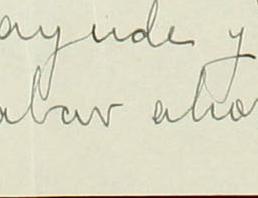 ayude y
abar aho